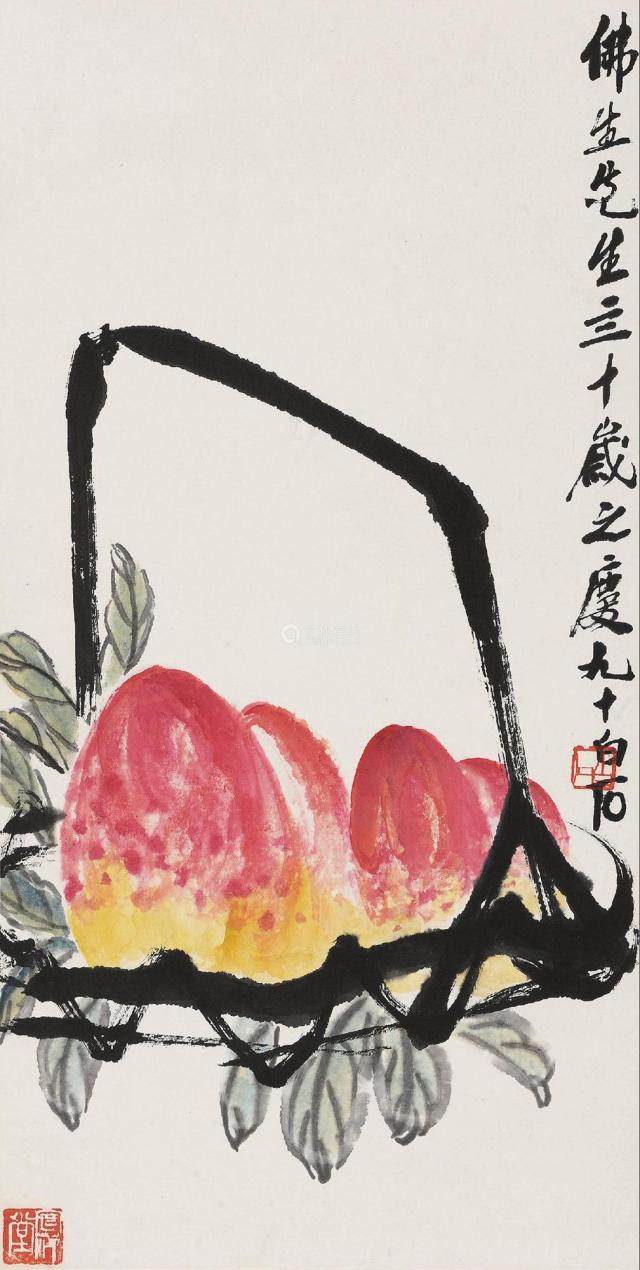 佛生先生三十歲之慶九十白石